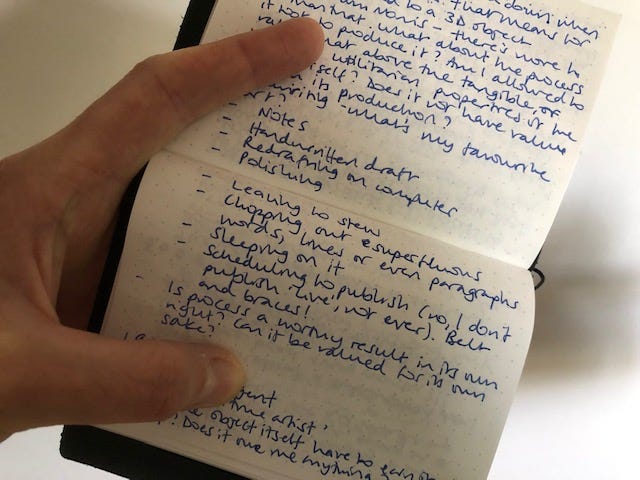 doing when
that means for
to a 3D object
there's more to
than that. what about the process
to produce it? Am I allowed to
above the tangible, or
utilitarian properties of the
itself? Does it not have value
in its production?
writing - what's my favourite
art?
- Notes
- Handwritten draft
- Redrafting on computer
- Polishing
- Leaving to stew
- Chopping out superfluous
words, lines or even paragraphs
- Sleeping on it
- Scheduling to publish (no, I don't
publish 'live', not ever). Belt
and braces!
- Is process a worthy result in its own
right? Can it be valued for its own
sake?
time artist,
object itself have to
? Does it owe me anything